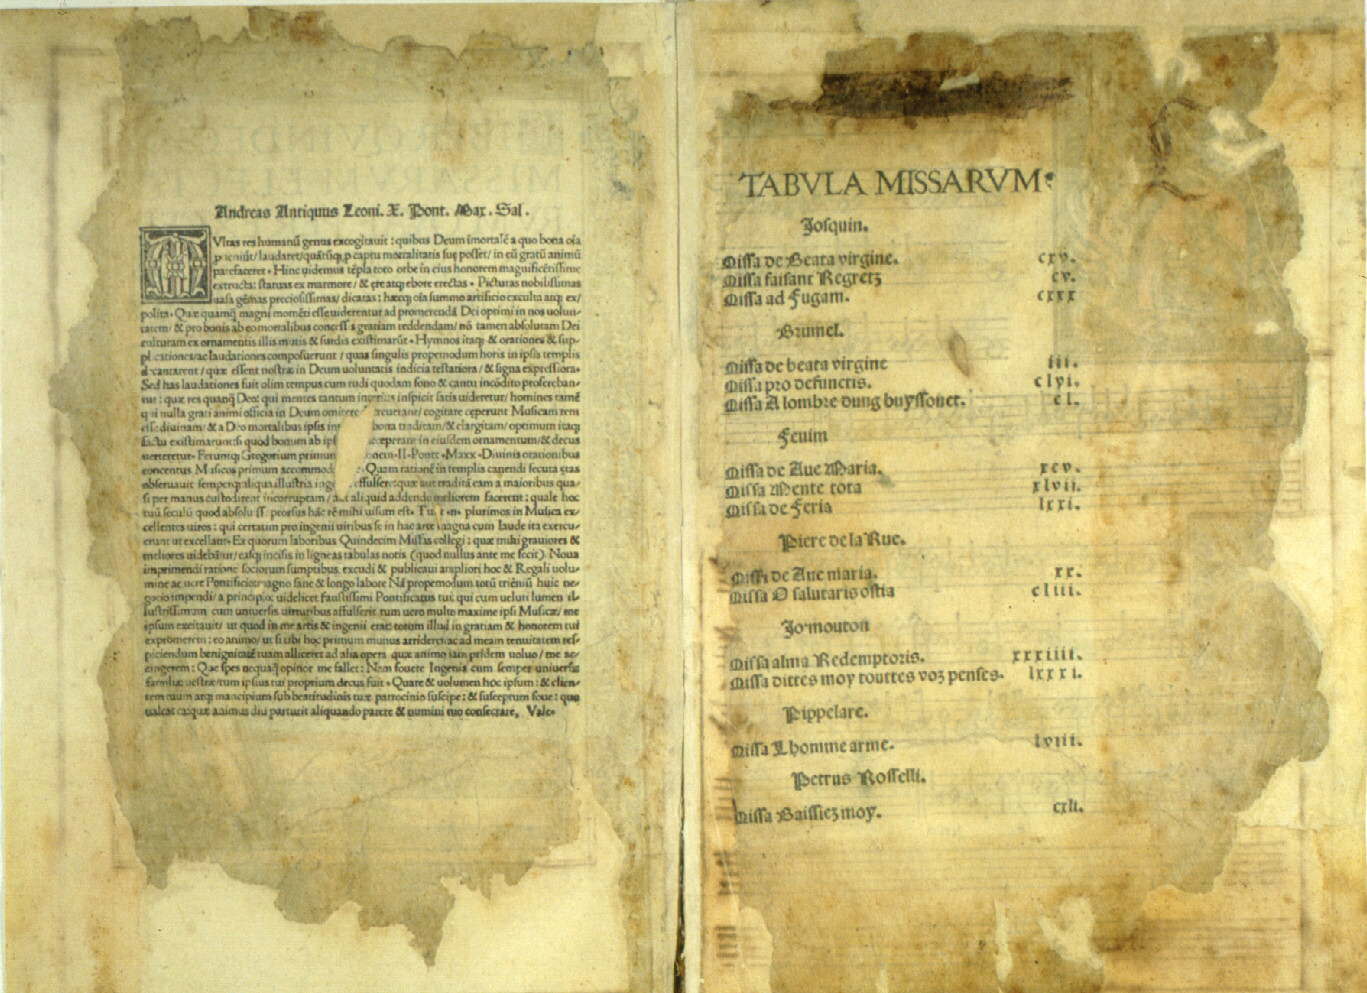 Andreas Antiquus Leoni. X. Pont. Max. Sal.
MVltas res humanū genus excogitauit: quibus Deum īmortalē a quo bona oīa
laudaret/ captu mortalitatis suę posset/ in eū gratū animū
patefaceret. Hinc uidemus tēpla toto orbe in eius honorem magnificētissime
extructa: statuas ex marmore/ & ęre atqȝ ebore erectas. Picturas nobilissimas
uasa gēmas preciosissimas/ dicatas: hæcqȝ oīa summo artificio exculta atqȝ ex/
polita. Quæ quamqȝ magni momēti esse uiderentur ad promerendā Dei optimi in nos uolun/
tatem/ & pro bonis ab eo mortalibus concessis gratiam reddendam/ nō tamen absolutam Dei
culturam ex ornamentis illis mutis & surdis existimarūt. Hymnos itaqȝ & orationes & sup/
plicationes/ac laudationes composuerunt/ quas singulis propemodum horis in ipsis templis
decantarent/ quæ essent nostræ in Deum uoluntatis indicia testatiora/ & signa expressiora.
Sed has laudationes fuit olim tempus cum rudi quodam sono & cantu incōdito profereban/
tur: quæ res quanqȝ Deo: qui mentes tantum intentius inspicit satis uideretur/ homines tamē
qui nulla grati animi officia in Deum omittere cogitare ceperunt Musicam rem
esse diuinam/ & a Deo mortalibus ipsis bona traditam/ & elargitam/ optimum itaqȝ
factu existimarunt: si quod bonum ab ceperant in eiusdem ornamentum/ & decus
uerteretur. Feruntqȝ Gregorium primum II. Pontt. Maxx. Diuinis orationibus
concentus Musicos primum accommod Quam rationē in templis canendi secuta ętas
obseruauit semperqȝ aliqua illustria inge effulsere: quæ aut traditā eam a maioribus qua/
si per manus custodirent incorruptam/ aut aliquid addendo meliorem facerent: quale hoc
tuū seculū quod absoluisse prorsus hāc rē mihi uisum est. plurimos in Musica ex/
cellentes uiros: qui certatim pro ingenii uiribus se in hac arte magna cum laude ita exercu/
erunt ut excellant. Ex quorum laboribus Quindecim Missas collegi: quæ mihi grauiores &
meliores uidebātur/ easqȝ incisis in ligneas tabulas notis (quod nullus ante me fecit). Noua
imprimendi ratione sociorum sumptibus excudi & publicaui ampliori hoc & Regali uolu/
mine ac uere Pontificio: magno sane & longo labore Nā propemodum totū triēniū huic ne/
gocio impendi a principio uidelicet faustissimi Pontificatus tui: qui cum ueluti lumen il/
lustrissimum cum uniuersis uirtutibus affulserit tum uero multo maxime ipsi Musicæ/ me
ipsum excitauit/ ut quod in me artis & ingenii erat: totum illud in gratiam & honorem tui
expromerem: eo animo/ ut si tibi hoc primum munus arriderct: ac ad meam tenuitatem res/
piciendum benignitatē tuam alliceret ad alia opera quæ animo iam pridem uoluo/ me ac/
cingerem: Quæ spes nequaqȝ opinor me fallet: Nam fouere Ingenia cum semper uniuersæ
familiæ uestræ: tum ipsius tui proprium decus fuit. Quare & uolumen hoc ipsum: & clien/
tem tuum atqȝ mancipium sub beatitudinis tuæ patrocinio suscipe: & susceptum foue: quo
ualeat ea: quæ animus diu parturit aliquando parere & numini tuo consecrare. Vale.
TABVLA MISSARVM
Josquin.
Missa de Beata virgine. cxv.
Missa faisant Regretz cv.
Missa ad Fugam. cxxx
Brumel.
Missa de beata virgine iii.
Missa pro defunctis. clvi.
Missa A lombre dung buyssonet. cl.
Feuim
Missa de Aue Maria. xcv.
Missa Mente tota xlvii.
Missa de Feria lxxi.
Piere de la Rue.
Missa de Aue maria. xx.
Missa O salutaris ostia cliii.
Jo mouton
Missa alma Redemptoris. xxxiiii.
Missa dittes moy touttes voz penses. lxxxi.
Pippelare.
Missa Lhomme arme. lviii.
Petrus Rosselli.
Missa Baissiez moy. cxli.